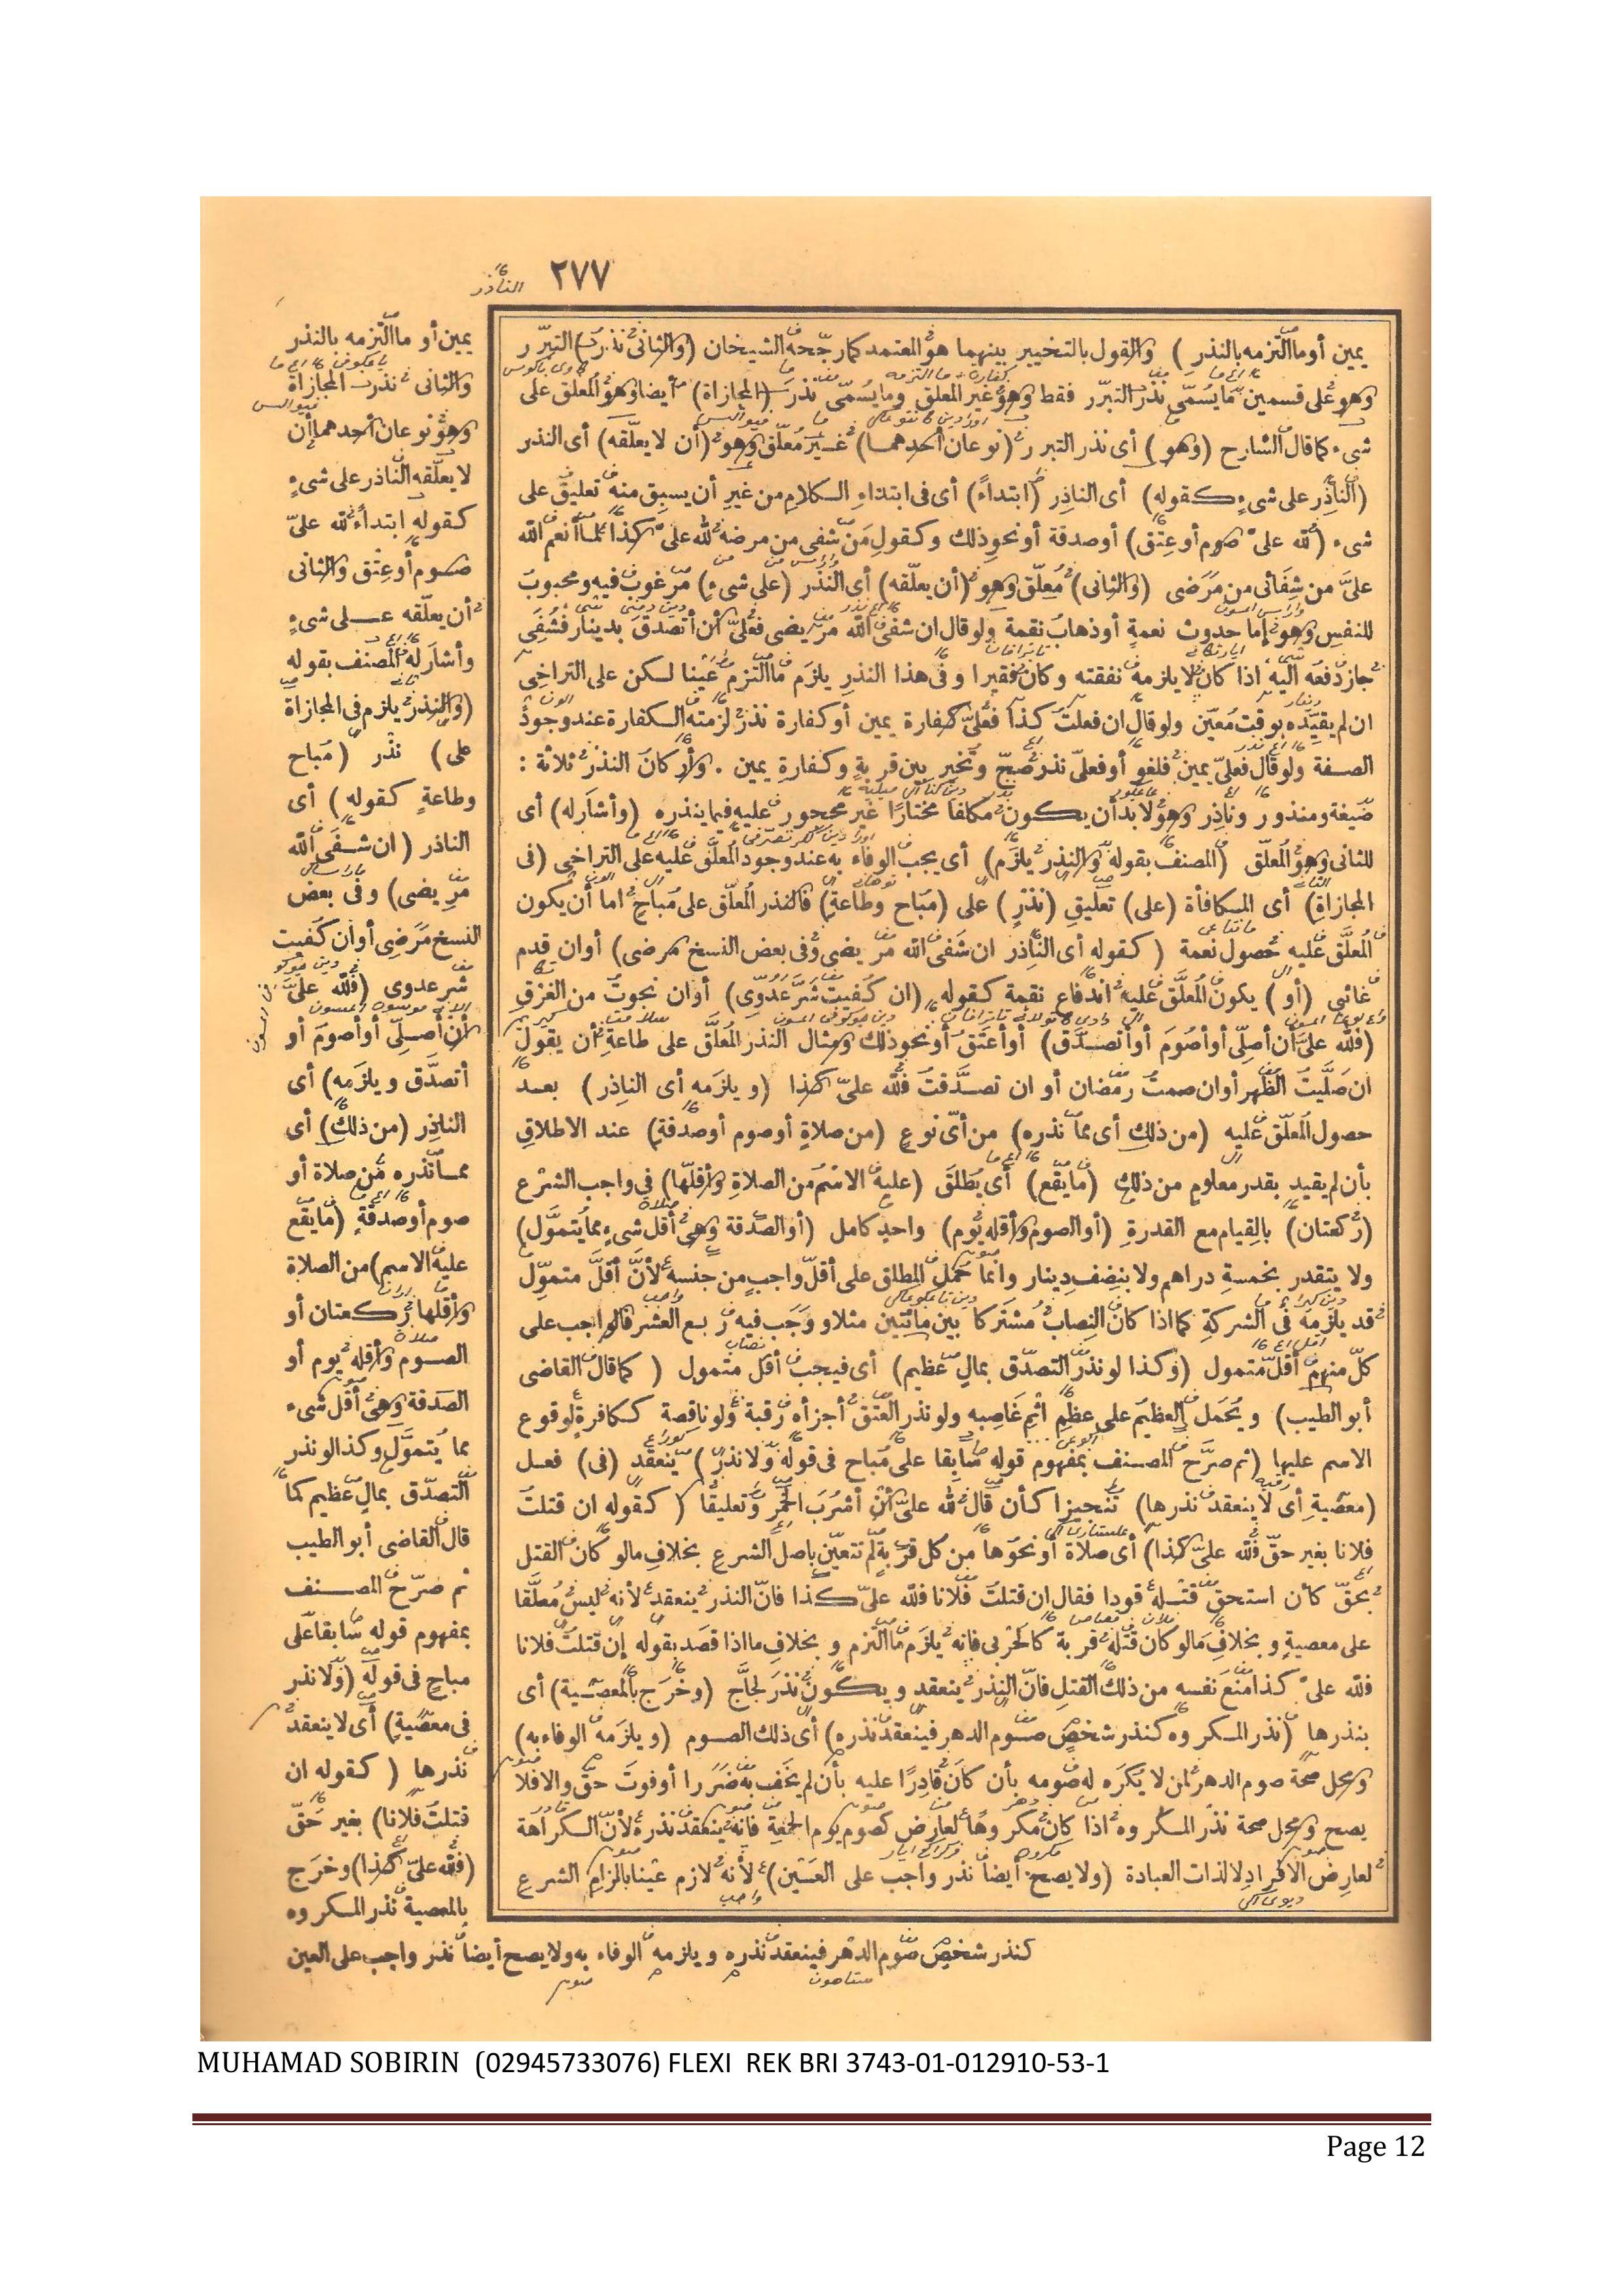 ٢٧٧
يمين أو ما التزمه بالنذر ) والقول بالتخيير بينهما هو المعتمد كما رجّحه الشيخان (والثانى نذر) التبرّر
وهو على قسمين ما يسمّى نذر التبرّر فقط وهو غير المعلق وما يسمّى نذر (المجازاة) أيضا وهو المعلق على
شىء كما قال الشارح (وهو) أى نذر التبرر (نوعان أحدهما) غير معلّق وهو (أن لا يعلّقه) أى النذر
(الناذر على شىء كقوله) أى الناذر (ابتداءً) أى فى ابتداء الكلام من غير أن يسبق منه تعليق على
شىء (لله علىّ صوم أو عتق) أو صدقة أو نحو ذلك وكقول من شفى من مرضه لله علىّ كذا لما أنعم الله
علىّ من شفائى من مرضى (والثانى) معلّق وهو (أن يعلّقه) أى النذر (على شىء) مرغوب فيه ومحبوب
للنفس وهو إما حدوث نعمة أو ذهاب نقمة ولو قال ان شفى الله مريضى فعلىّ أن أتصدق بدينار فشفى
جاز دفعه اليه اذا كان لا يلزمه نفقته وكان فقيرا وفى هذا النذر يلزم ما التزم عينا لكن على التراخى
ان لم يقيّده بوقت معيّن ولو قال ان فعلت كذا فعلىّ كفارة يمين أو كفارة نذر لزمته الكفارة عند وجود
الصفة ولو قال فعلىّ يمين فلغو أو فعلىّ نذر صحّ وتخير بين قربة وكفارة يمين . وأركان النذر ثلاثة :
صيغة ومنذور وناذر وهو لا بد أن يكون مكلفا مختارا غير محجور عليه فيما ينذره (وأشار له) أى
للثانى وهو المعلّق (المصنف بقوله والنذر يلزم) أى يجب الوفاء به عند وجود المعلّق عليه على التراخى (فى
المجازاة) أى المكافأة (على) تعليق (نذر) على (مباح وطاعة) فالنذر المعلّق على مباح اما أن يكون
المعلّق عليه حصول نعمة ( كقوله أى الناذر ان شفى الله مريضى وفى بعض النسخ مرضى) أو ان قدم
غائبى (أو) يكون المعلّق عليه اندفاع نقمة كقوله (ان كفيت شرّ عدوّى) أو ان نجوت من الغرق
(فلله علىّ أن أصلّى أو أصوم أو أتصدّق) أو أعتق أو نحو ذلك ومثال النذر المعلّق على طاعة أن يقول
ان صلّيت الظهر أو ان صمت رمضان أو ان تصدّقت فلله علىّ كذا (ويلزمه أى الناذر) بعد
حصول المعلّق عليه (من ذلك أى مما نذره) من أىّ نوع (من صلاة أو صوم أو صدقة) عند الاطلاق
بأن لم يقيد بقدر معلوم من ذلك (ما يقع) أى يطلق (عليه الاسم من الصلاة وأقلّها) فى واجب الشرع
(ركعتان) بالقيام مع القدرة (أو الصوم وأقله يوم) واحد كامل (أو الصدقة وهى أقل شىء مما يتموّل)
ولا يتقدر بخمسة دراهم ولا بنصف دينار وانما حمل المطلق على أقلّ واجب من جنسه لأنّ أقلّ متموّل
قد يلزمه فى الشركة كما اذا كان النصاب مشتركا بين مائتين مثلا ووجب فيه ربع العشر فالواجب على
كلّ منهم أقلّ متمول (وكذا لو نذر التصدّق بمال عظيم) أى فيجب أقل متمول ( كما قال القاضى
أبو الطيب) ويحمل العظيم على عظم اثم غاصبه ولو نذر العتق أجزأه رقبة ولو ناقصة ككافرة لوقوع
الاسم عليها (ثم صرّح المصنف بمفهوم قوله سابقا على مباح فى قوله ولا نذر) ينعقد (فى) فعل
(معصية أى لا ينعقد نذرها) تنجيزا كأن قال لله علىّ أن أشرب الخمر وتعليقا ( كقوله ان قتلت
فلانا بغير حقّ فلله علىّ كذا) أى صلاة أو نحوها من كل قربة لم تتعيّن باصل الشرع بخلاف ما لو كان القتل
بحقّ كأن استحق قتله قودا فقال ان قتلت فلانا فلله علىّ كذا فانّ النذر ينعقد لأنه ليس معلّقا
على معصية وبخلاف ما لو كان قتله قربة كالحربى فانه يلزم ما التزم وبخلاف ما اذا قصد بقوله إن قتلت فلانا
فلله علىّ كذا منع نفسه من ذلك القتل فانّ النذر ينعقد ويكون نذر لجاج (وخرج بالمعصية) أى
بنذرها (نذر المكروه كنذر شخص صوم الدهر فينعقد نذره) أى ذلك الصوم (ويلزمه الوفاء به)
ومحل صحة صوم الدهر لمن لا يكره له صومه بأن كان قادرا عليه بأن لم يخف به ضررا أو فوت حقّ والا فلا
يصح ومحل صحة نذر المكروه اذا كان مكروها لعارض كصوم يوم الجمعة فانه ينعقد نذره لأنّ الكراهة
لعارض الافراد لا لذات العبادة (ولا يصح أيضا نذر واجب على العين) لأنه لازم عينا بالزام الشرع
الناذر
يمين أو ما التزمه بالنذر
والثانى نذر المجازاة
وهو نوعان أحدهما أن
لا يعلّقه الناذر على شىء
كقوله ابتداءً لله علىّ
صوم أو عتق والثانى
أن يعلّقه على شىء
وأشار له المصنف بقوله
(والنذر يلزم فى المجازاة
على) نذر (مباح
وطاعة كقوله) أى
الناذر (ان شفى الله
مريضى) وفى بعض
النسخ مرضى أو ان كفيت
شر عدوى (فلله علىّ
أن أصلّى أو أصوم أو
أتصدّق ويلزمه) أى
الناذر (من ذلك) أى
مما نذره من صلاة أو
صوم أو صدقة (ما يقع
عليه الاسم) من الصلاة
وأقلها ركعتان أو
الصوم وأقله يوم أو
الصدقة وهى أقل شىء
مما يتموّل وكذا لو نذر
التصدّق بمال عظيم كما
قال القاضى أبو الطيب
ثم صرّح المصنف
بمفهوم قوله سابقا على
مباح فى قوله (ولا نذر
فى معصية) أى لا ينعقد
نذرها ( كقوله ان
قتلت فلانا) بغير حقّ
(فلله علىّ كذا) وخرج
بالمعصية نذر المكروه
كنذر شخص صوم الدهر فينعقد نذره ويلزمه الوفاء به ولا يصح أيضا نذر واجب على العين
MUHAMAD SOBIRIN (02945733076) FLEXI REK BRI 3743-01-012910-53-1
Page 12